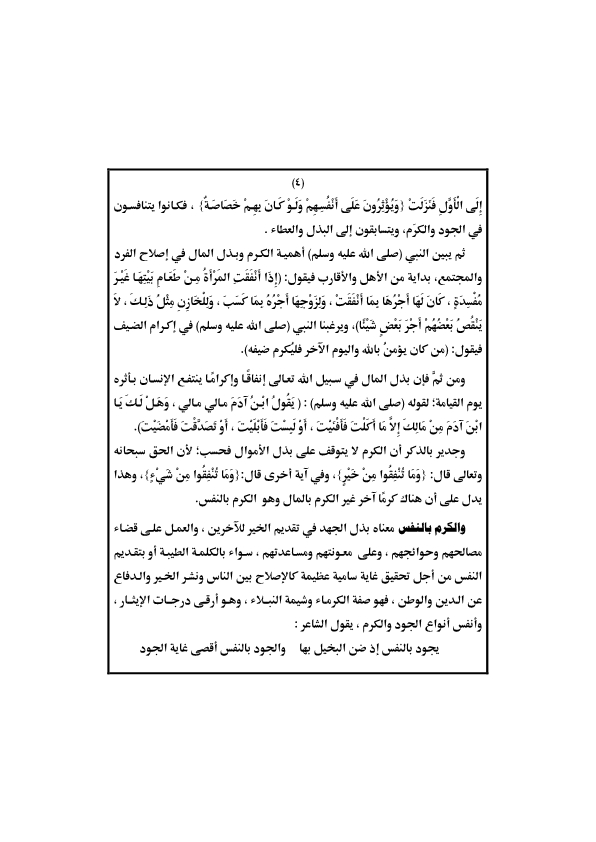 (٤)
إِلَى الْأَوَّلِ فَنَزَلَتْ {وَيُؤْثِرُونَ عَلَى أَنْفُسِهِمْ وَلَوْ كَانَ بِهِمْ خَصَاصَةٌ} ، فكانوا يتنافسون
في الجود والكرَم، ويتسابقون إلى البذل والعطاء .
ثم يبين النبي (صلى الله عليه وسلم) أهمية الكرم وبذل المال في إصلاح الفرد
والمجتمع، بداية من الأهل والأقارب فيقول: (إِذَا أَنْفَقَتِ المَرْأَةُ مِنْ طَعَامِ بَيْتِهَا غَيْرَ
مُفْسِدَةٍ ، كَانَ لَهَا أَجْرُهَا بِمَا أَنْفَقَتْ ، وَلِزَوْجِهَا أَجْرُهُ بِمَا كَسَبَ ، وَلِلْخَازِنِ مِثْلُ ذَلِكَ ، لاَ
يَنْقُصُ بَعْضُهُمْ أَجْرَ بَعْضٍ شَيْئًا)، ويرغبنا النبي (صلى الله عليه وسلم) في إكرام الضيف
فيقول: (من كان يؤمنُ بالله واليوم الآخر فليُكرم ضيفه).
ومن ثمَّ فإن بذل المال في سبيل الله تعالى إنفاقًا وإكرامًا ينتفع الإنسان بأثره
يوم القيامة؛ لقوله (صلى الله عليه وسلم) : ( يَقُولُ ابْنُ آدَمَ مالي مالي ، وَهَلْ لَكَ يَا
ابْنَ آدَمَ مِنْ مَالِكَ إِلاَّ مَا أَكَلْتَ فَأَفْنَيْتَ ، أَوْ لَبِسْتَ فَأَبْلَيْتَ ، أَوْ تَصَدَّقْتَ فَأَمْضَيْتَ).
وجدير بالذكر أن الكرم لا يتوقف على بذل الأموال فحسب؛ لأن الحق سبحانه
وتعالى قال: {وَمَا تُنْفِقُوا مِنْ خَيْرٍ}، وفي آية أخرى قال:{وَمَا تُنْفِقُوا مِنْ شَيْءٍ}، وهذا
يدل على أن هناك كرمًا آخر غير الكرم بالمال وهو الكرم بالنفس.
والكرم بالنفس معناه بذل الجهد في تقديم الخير للآخرين ، والعمل على قضاء
مصالحهم وحوائجهم ، وعلى معونتهم ومساعدتهم ، سواء بالكلمة الطيبة أو بتقديم
النفس من أجل تحقيق غاية سامية عظيمة كالإصلاح بين الناس ونشر الخير والدفاع
عن الدين والوطن ، فهو صفة الكرماء وشيمة النبلاء ، وهو أرقى درجات الإيثار ،
وأنفس أنواع الجود والكرم ، يقول الشاعر :
يجود بالنفس إذ ضن البخيل بها والجود بالنفس أقصى غاية الجود